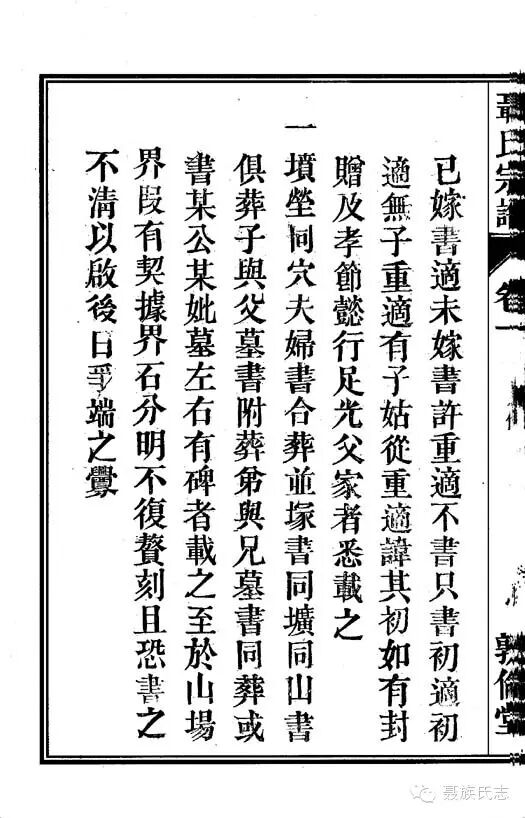 聶氏宗譜
卷一
敦倫堂
已嫁書適未嫁書許重適不書只書初適初
適無子重適有子姑從重適諱其初如有封
贈及孝節懿行足光父家者悉載之
一墳塋同穴夫婦書合葬並塚書同壙同山書
俱葬子與父墓書附葬弟與兄墓書同葬或
書某公某妣墓左右有碑者載之至於山場
界段有契據界石分明不復贅刻且恐書之
不清以啟後日爭端之釁
聂族氏志